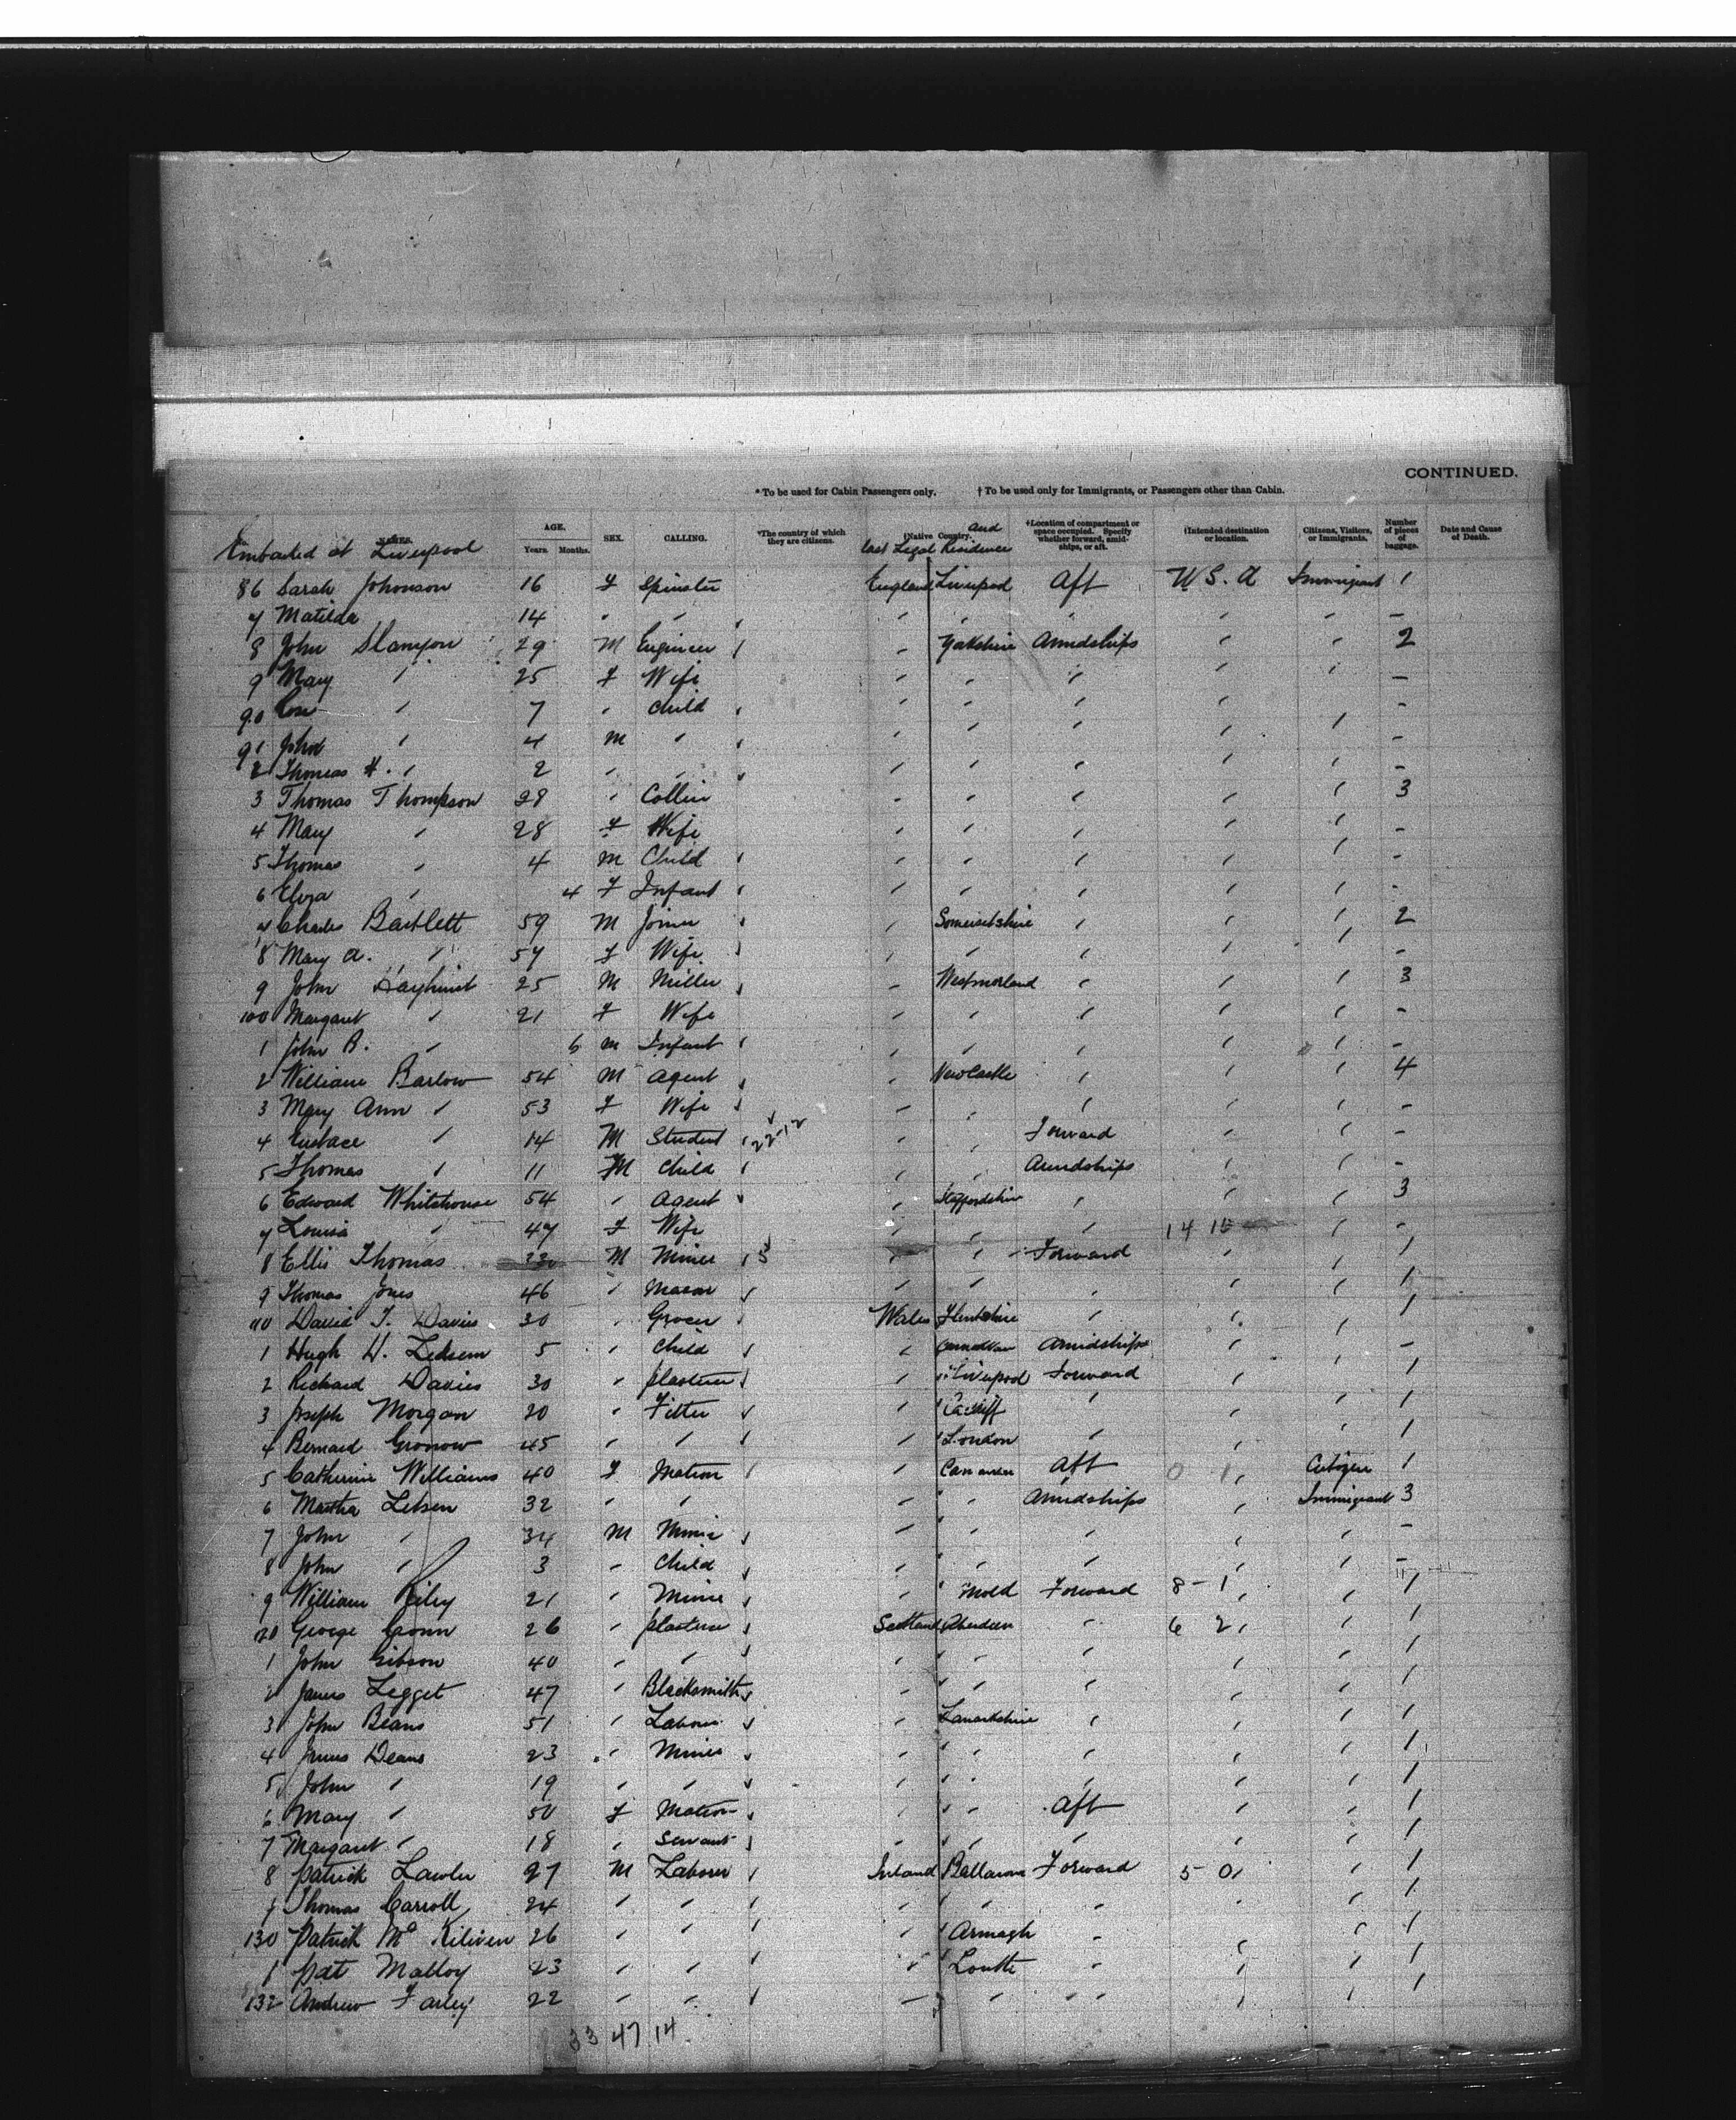 CONTINUED.
* To be used for Cabin Passengers only. † To be used only for Immigrants, or Passengers other than Cabin.
NAMES. AGE. Years. Months. SEX. CALLING. *The country of which they are citizens. †Native Country. and last Legal Residence †Location of compartment or space occupied. Specify whether forward, amidships, or aft. †Intended destination or location. Citizens, Visitors, or Immigrants. Number of pieces of baggage. Date and Cause of Death.
Embarked at Liverpool
86 Sarah Johnson 16 F Spinster England Liverpool Aft U.S.A Immigrant 1
7 Matilda 14 " " " " " " " -
8 John Slanyon 29 M Engineer " Yorkshire Amidships " " 2
9 Mary " 25 F Wife " " " " " -
90 " 7 " Child " " " " " -
91 John " 4 M " " " " " " -
2 Thomas H. " 2 " " " " " " " -
3 Thomas Thompson 28 " Collier " " " " " 3
4 Mary " 28 F Wife " " " " " -
5 Thomas " 4 M Child " " " " " -
6 Eliza " 4 F Infant " " " " " -
7 Charles Bartlett 59 M Joiner " Somersetshire " " " 2
8 Mary A. " 57 F Wife " " " " " -
9 John Hayhurst 25 M Miller " Westmorland " " " 3
100 Margaret " 21 F Wife " " " " " -
1 John B. " 6 M Infant " " " " " -
2 William Barlow 54 M Agent " Newcastle " " " 4
3 Mary Ann " 53 F Wife " " " " " -
4 Eustace " 14 M Student 22-12 " " Forward " " -
5 Thomas " 11 M Child " " Amidships " " -
6 Edward Whitehouse 54 " Agent " Staffordshire " " " 3
7 Louisa " 47 F Wife " " " 14 " -
8 Ellis Thomas 33 M Miner " Forward " " 1
9 Thomas Jones 46 " Mason " " " " " 1
110 David T. Davies 30 " Grocer Wales Flintshire " " " 1
1 Hugh W. 5 " Child " Amidships " " -
2 Richard Davies 30 " Plasterer " Liverpool Forward " " 1
3 Joseph Morgan 20 " Fitter " Cardiff " " " 1
4 Bernard Gronow 45 " " " London " " " 1
5 Catherine Williams 40 F Matron " Aft 0 1 Citizen 1
6 Martha 32 " " " " Amidships " Immigrant 3
7 John " 34 M Miner " " " " " -
8 John " 3 " Child " " " " " -
9 William Riley 21 " Miner " Mold Forward 8-1 " 1
120 George 26 " Plasterer Scotland Aberdeen " 6 2 " 1
1 John Gibson 40 " " " " " " " 1
2 James Legget 47 " Blacksmith " " " " " 1
3 John Beans 51 " Laborer " Lanarkshire " " " 1
4 James Deans 23 " Miner " " " " " 1
5 John " 19 " " " " " " " 1
6 Mary " 50 F Matron " " Aft " " 1
7 Margaret " 18 " Servant " " " " " 1
8 Patrick Lawler 27 M Laborer Ireland Forward 5-0 " 1
9 Thomas Carroll 24 " " " " " " " 1
130 Patrick 26 " " " Armagh " " " 1
1 Pat Malloy 23 " " " Louth " " " 1
132 Andrew Farley 22 " " " " " " " 1
33 47 14